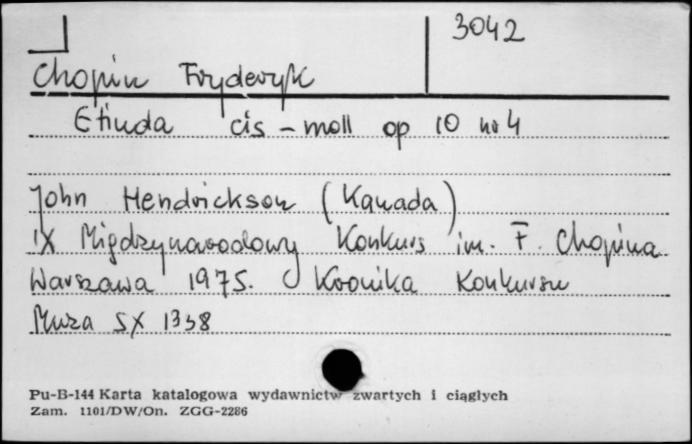 3042
Chopin Fryderyk
Etiuda cis-moll op 10 nr 4
John Hendrickson (Kanada)
IX Międzynarodowy Konkurs im. F. Chopina
Warszawa 1975. Kronika Konkursu
Muza SX 1338
Pu-B-144 Karta katalogowa wydawnictw zwartych i ciągłych
Zam. 1101/DW/On. ZGG-2286